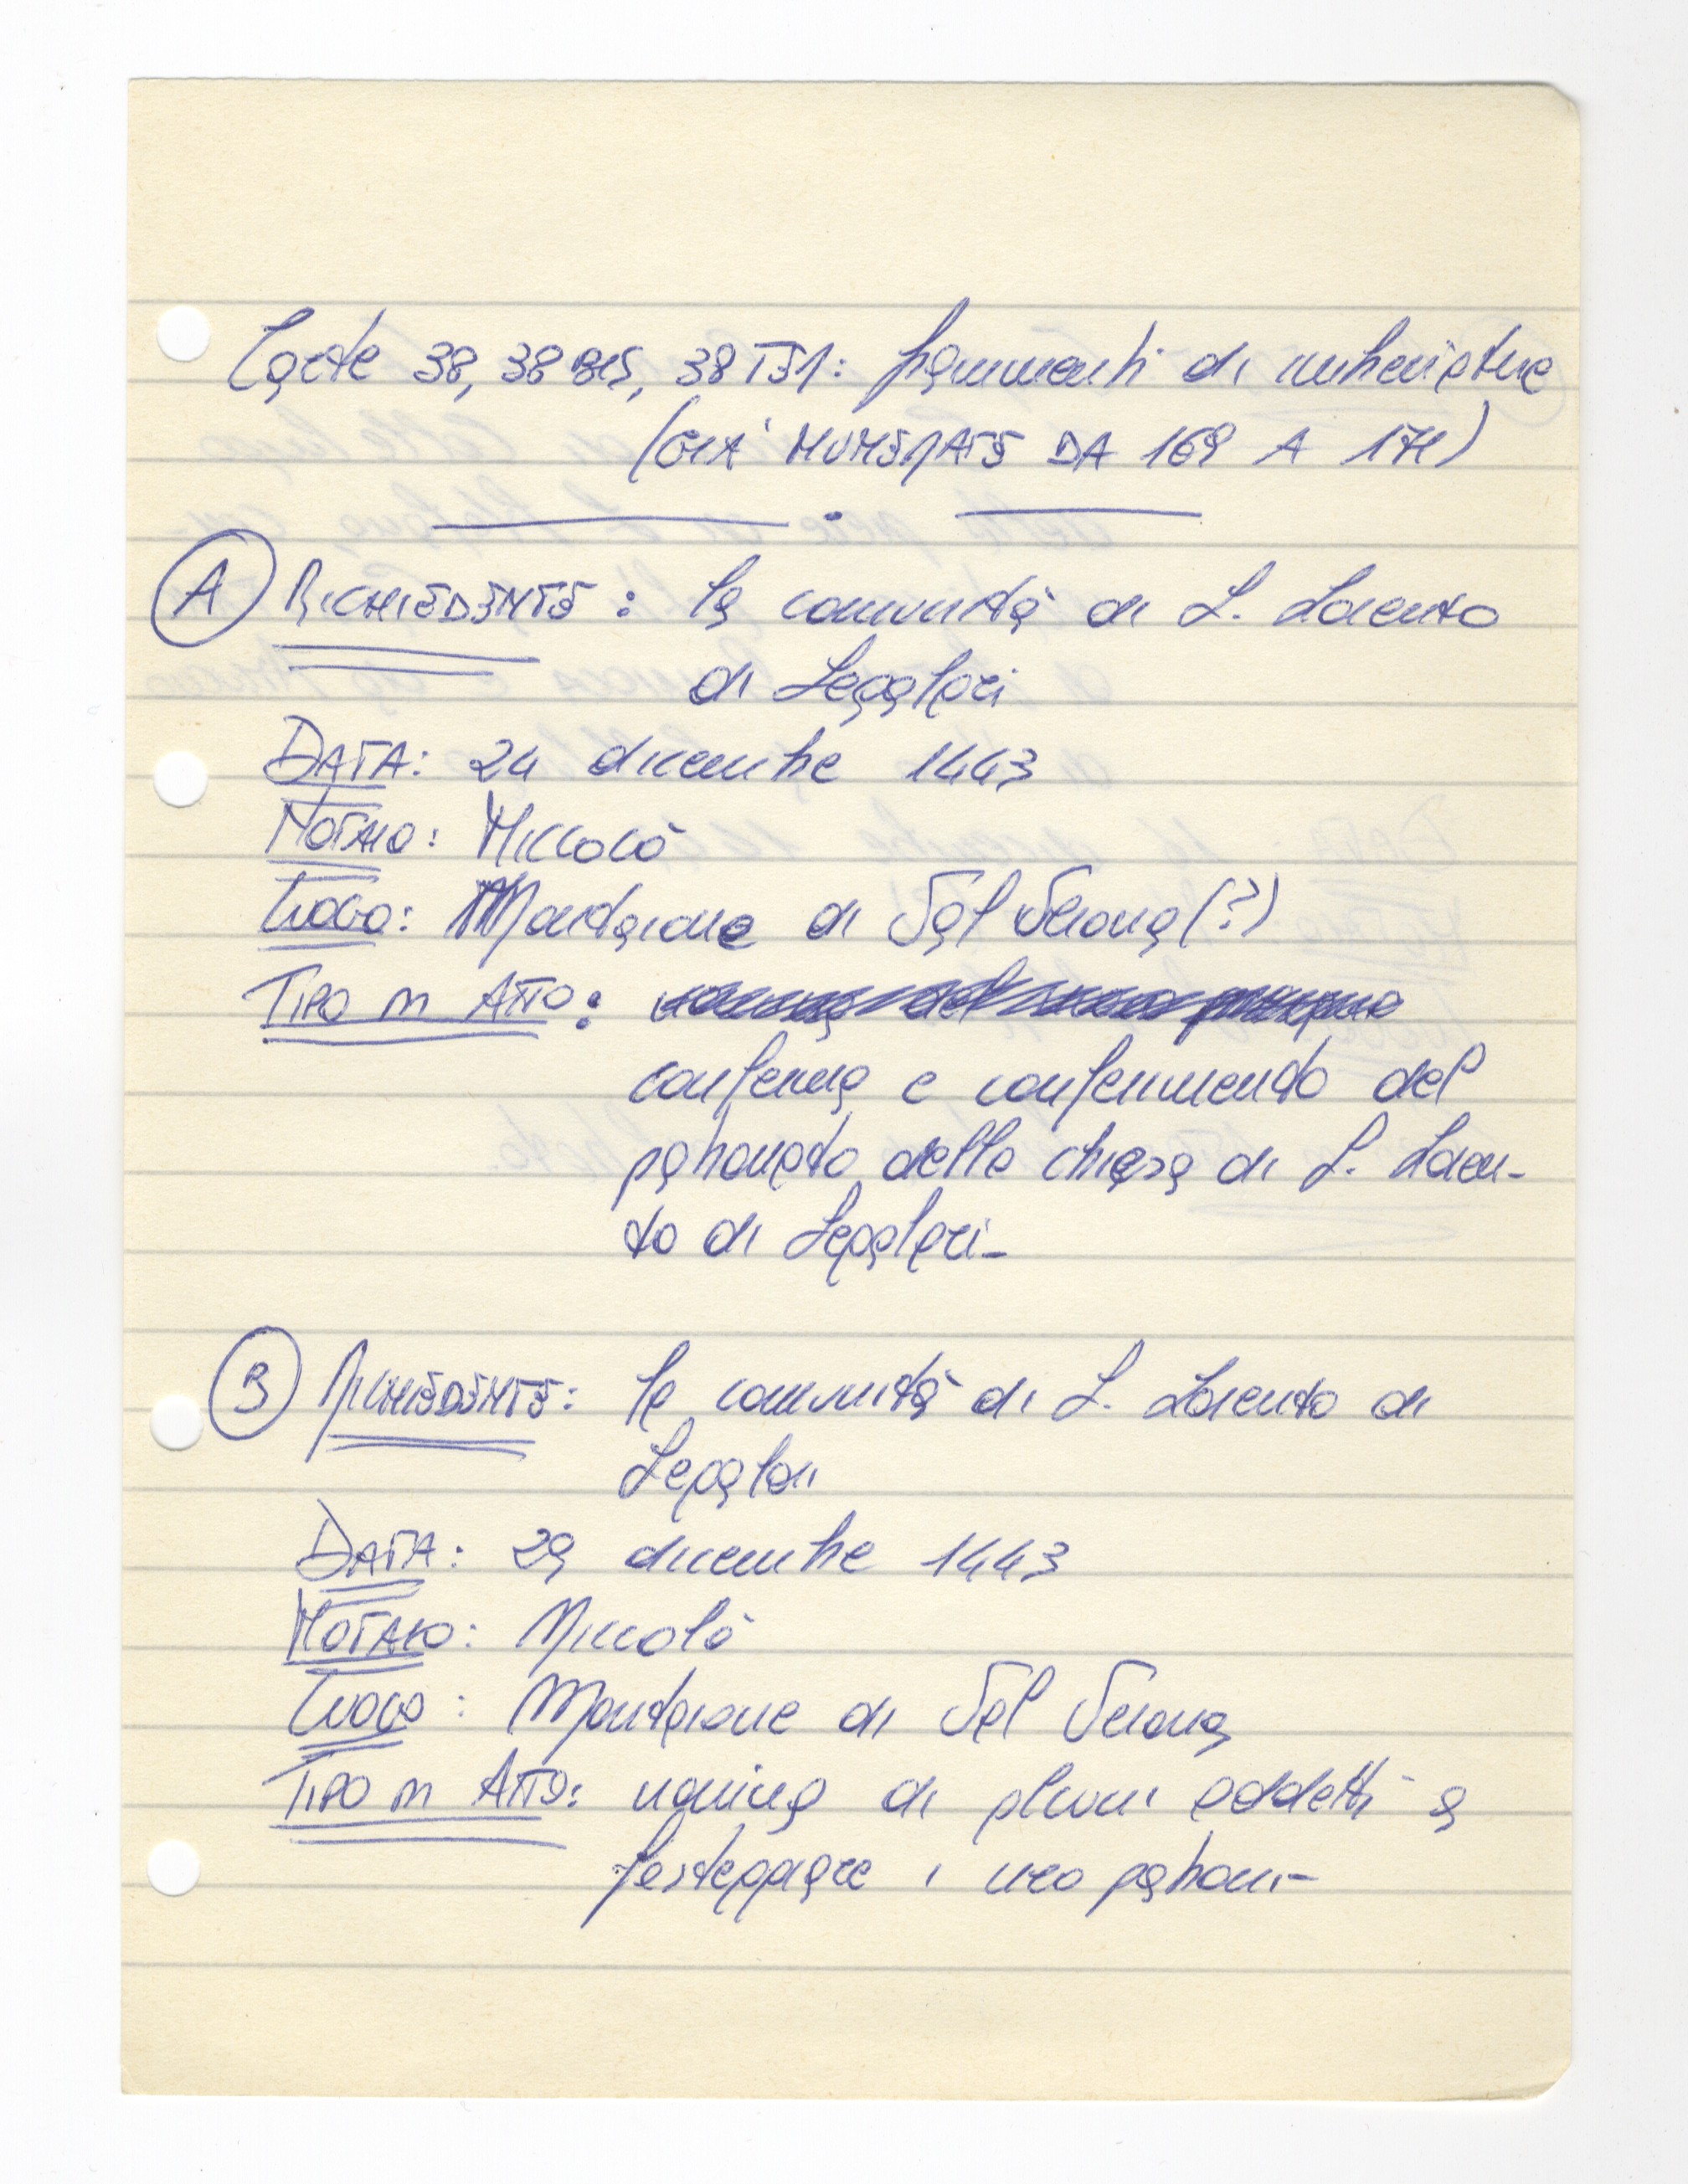 Carte 38, 38 BIS, 38 TER: frammenti di imbreviature
(GIA' NUMERATE DA 169 A 171)
A RICHIEDENTE: la comunità di S. Lorenzo
di
DATA: 24 dicembre 1443
NOTAIO: NICCOLÒ
LUOGO: Montaione di Val Verona (?)
TIPO DI ATTO:
conferma e conferimento del
patronato della chiesa di S. Loren-
zo di
B RICHIEDENTE: la comunità di S. Lorenzo di
DATA: 29 dicembre 1443
NOTAIO: Niccolò
LUOGO: Montaione di Val Verona
TIPO DI ATTO: nomina di alcuni addetti a
festeggiare i neo patroni-